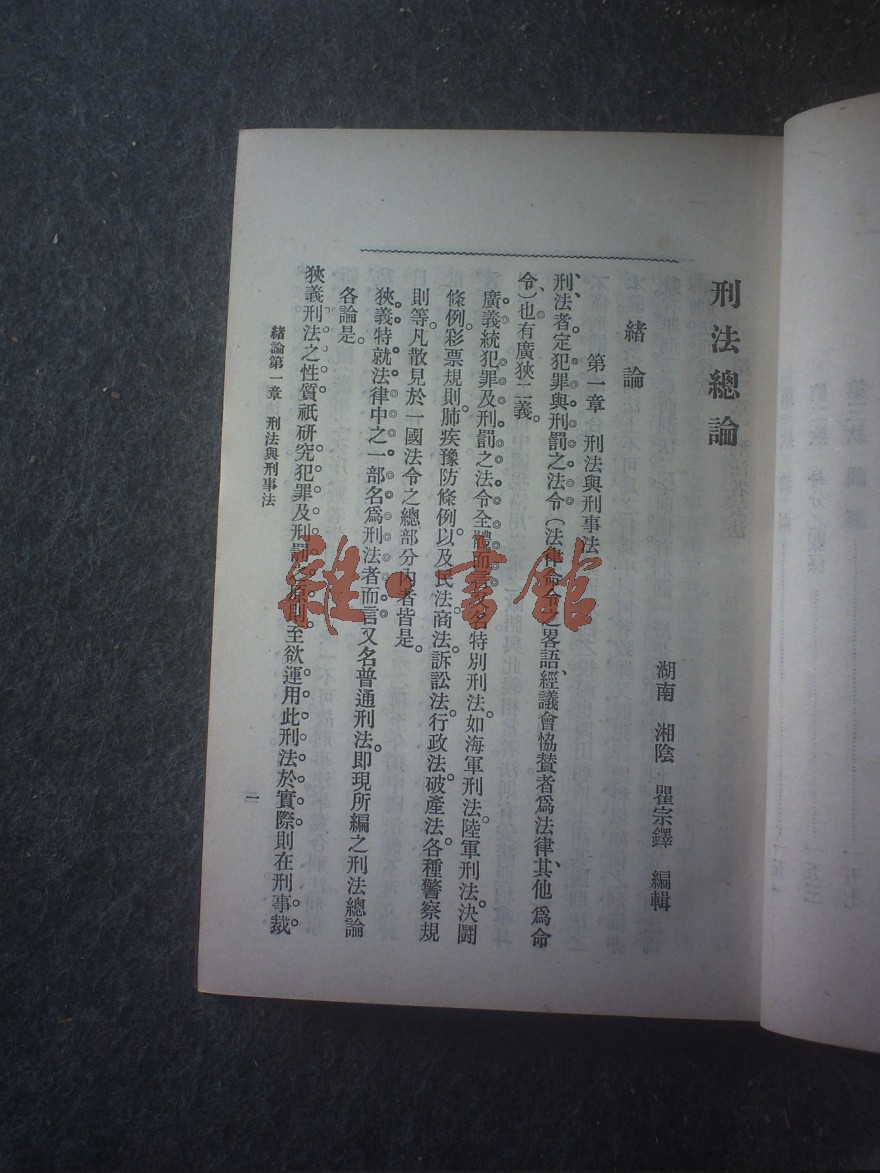 刑法總論
湖南 湘陰 瞿宗鐸 編輯
緒論
第一章 刑法與刑事法
刑法者定犯罪與刑罰之法令（法律命令之畧語、經議會協賛者爲法律、其他爲命
令）也有廣狹二義。
廣義統犯罪及刑罰之法令全體而言又名特別刑法如海軍刑法陸軍刑法。決鬪
條例彩票規則。肺疾豫防條例。以及民法商法。訴訟法。行政法。破產法。各種警察規
則等凡散見於一國法令之總部分內者皆是。
狹義特就法律中之一部名爲刑法者而言又名普通刑法。即現所編之刑法總論
各論是。
狹義刑法之性質祇研究犯罪及刑罰之原則。至欲運用此刑法於實際則在刑事裁
緒論第一章 刑法與刑事法
一
雜·書館